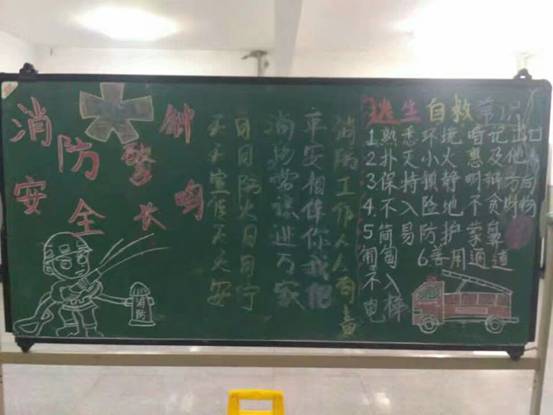 消防警钟
安全长鸣
消防工作人人有责
平安相伴你我他
消防常识进万家
日日防火日日宁
天天宣传天天安
逃生自救常识
1.熟悉环境 暗记出口
2.扑灭小火 惠及他人
3.保持镇静 明辨方向
4.不入险地 不贪财物
5.简易防护 蒙鼻
匍匐 6.善用通道
不入电梯
消防